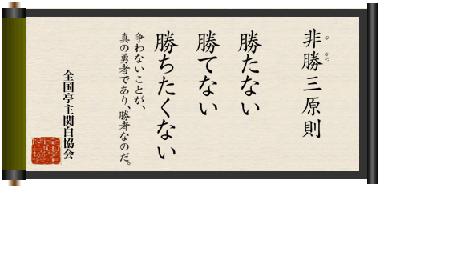 非勝三原則
勝たない
勝てない
勝ちたくない
争わないことが、
真の勇者であり、勝者なのだ。
全国亭主関白協会